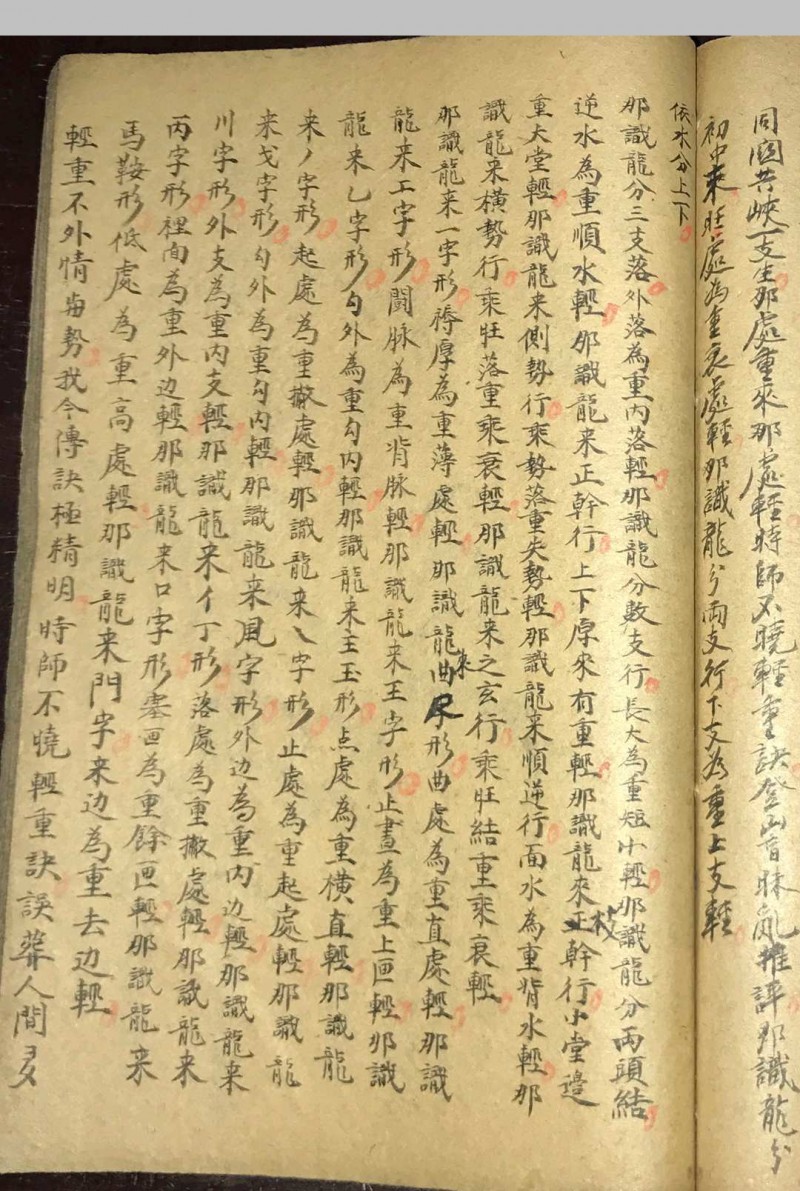 同囦共峽一支生那處重來那處輕時師不曉輕重訣登山盲昧亂推評那識龍分
初中來旺處為重衰處輕那識龍分兩支行下支為重上支輕
依水分上下
那識龍分三支落外落為重內落輕那識龍分數支行長大為重短小輕那識龍分兩頭結
逆水為重順水輕那識龍来正幹行上下厚來有重輕那識龍來正枝幹行小堂邉
重大堂輕那識龍来側勢行乘勢落重失勢輕那識龍来順逆行面水為重背水輕那
識龍来橫勢行乘旺落重乘衰輕那識龍来之玄行乘旺結重乘衰輕
那識龍来一字形褥厚為重薄處輕那識龍来曲尺形曲處為重直處輕那識
龍来工字形闘脉為重背脉輕那識龍来王字形止畫為重上画輕那識
龍来乙字形勾外為重勾内輕那識龍来主玉形点處為重橫直輕那識龍
来丿字形起處為重撇處輕那識龍来乀字形止處為重起處輕那識龍
来戈字形勾外為重勾内輕那識龍来風字形外边為重内边輕那識龍来
川字形外支為重内支輕那識龍来亻丁形落處為重撇處輕那識龍来
丙字形裡面為重外边輕那識龍来口字形塞画為重餘画輕那識龍来
馬鞍形低處為重高處輕那識龍来門字来边為重去边輕
輕重不外情與勢我今傳訣極精明時師不曉輕重訣誤葬人間男女